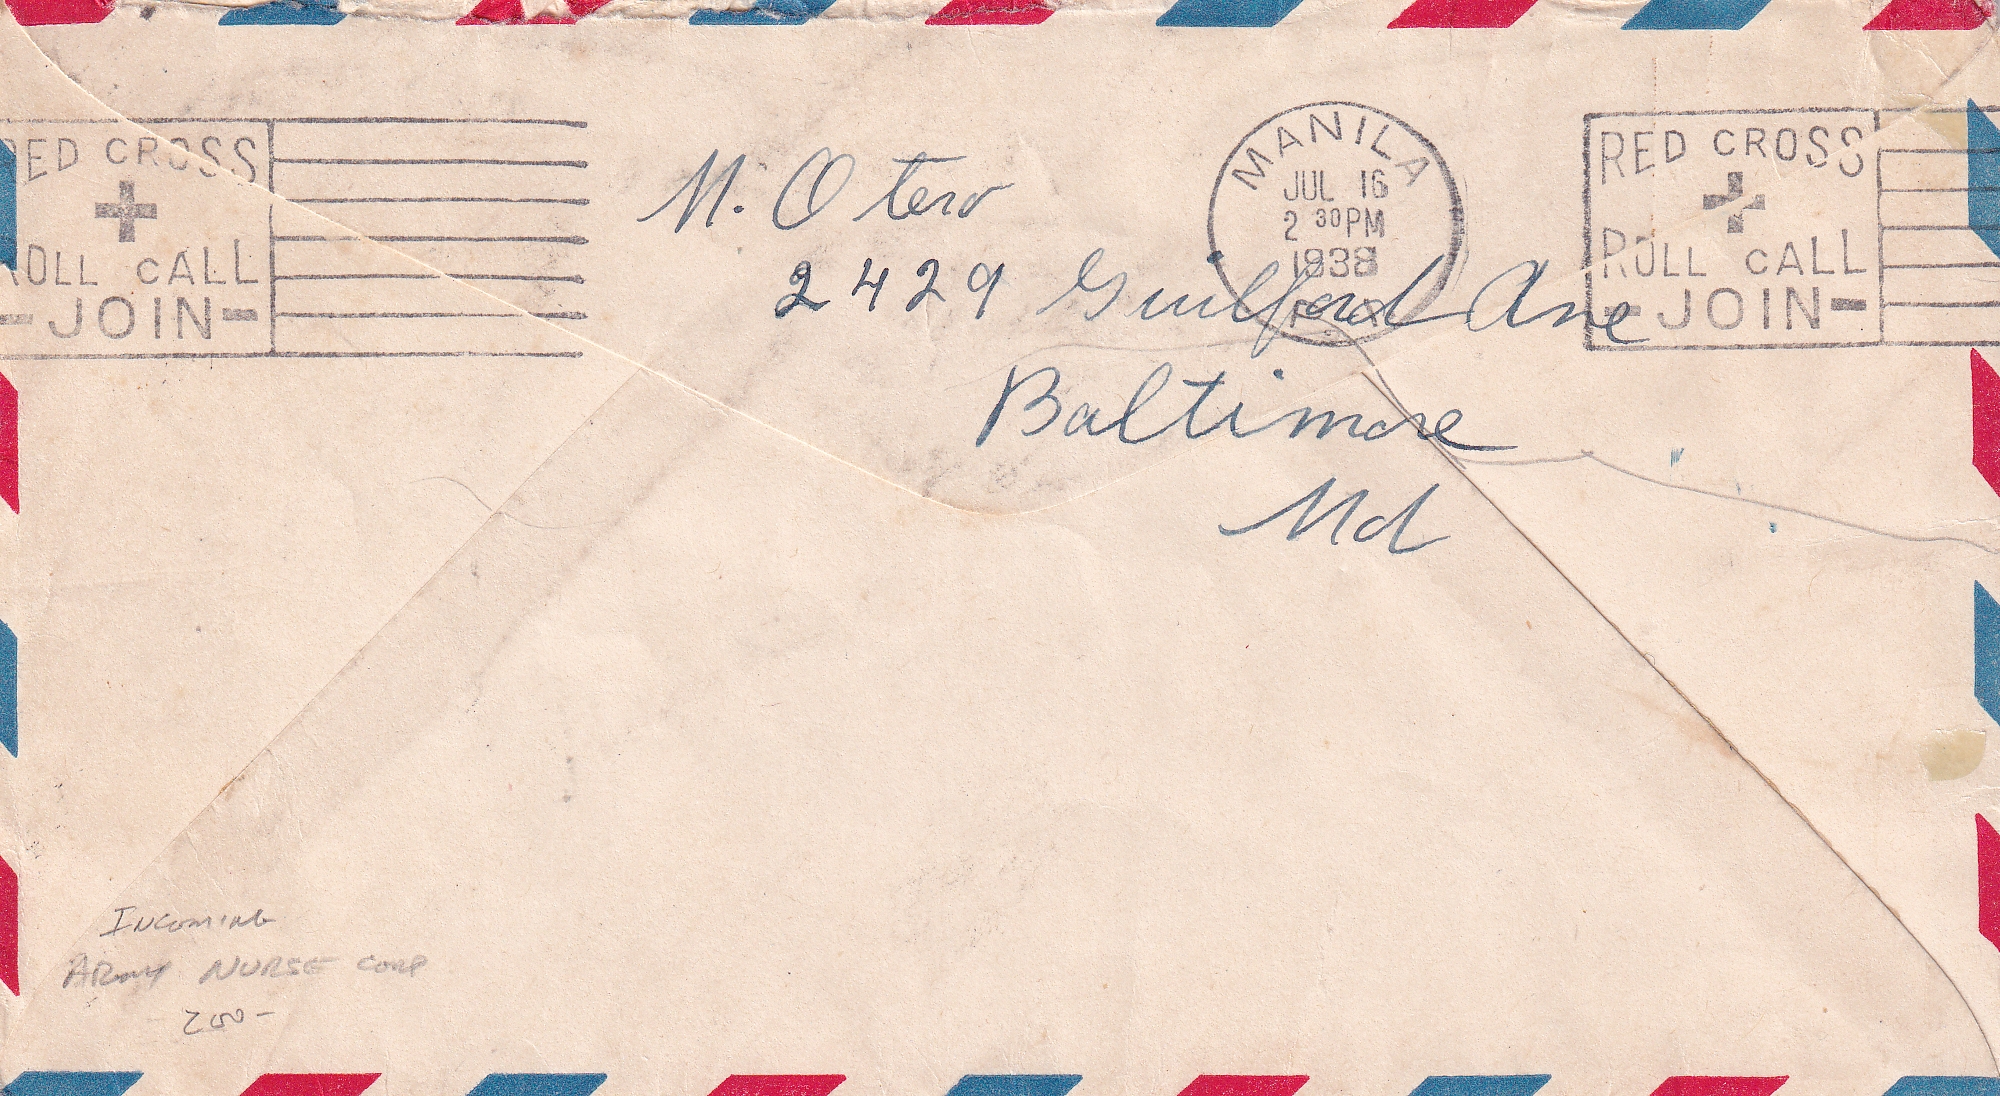 RED CROSS
ROLL CALL
-JOIN-
M. Otero
2429 Guilford Ave
Baltimore
Md
MANILA
JUL 16
2 30 PM
1938
P.I.
RED CROSS
ROLL CALL
-JOIN-
INCOMING
ARMY NURSE CORP
200-